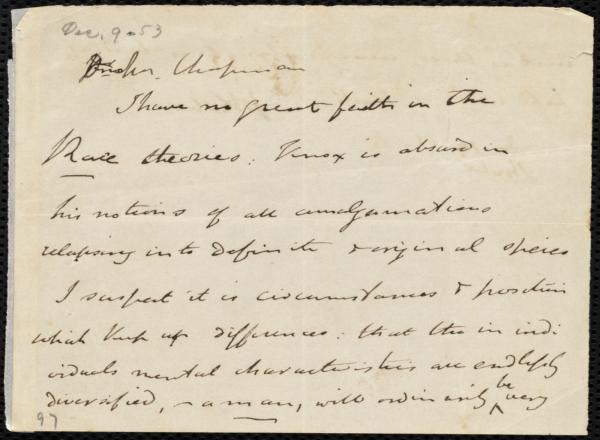 Dec. 9-53
Mrs. Chapman
I have no great faith in the
Race theories. Knox is absurd in
his notions of all amalgamations
relapsing into definite & original species
I suspect it is circumstances & position
which keep up differences: that the in indi
viduals mental characteristics are endlessly
diversified, a man, will ordinarily be very
97